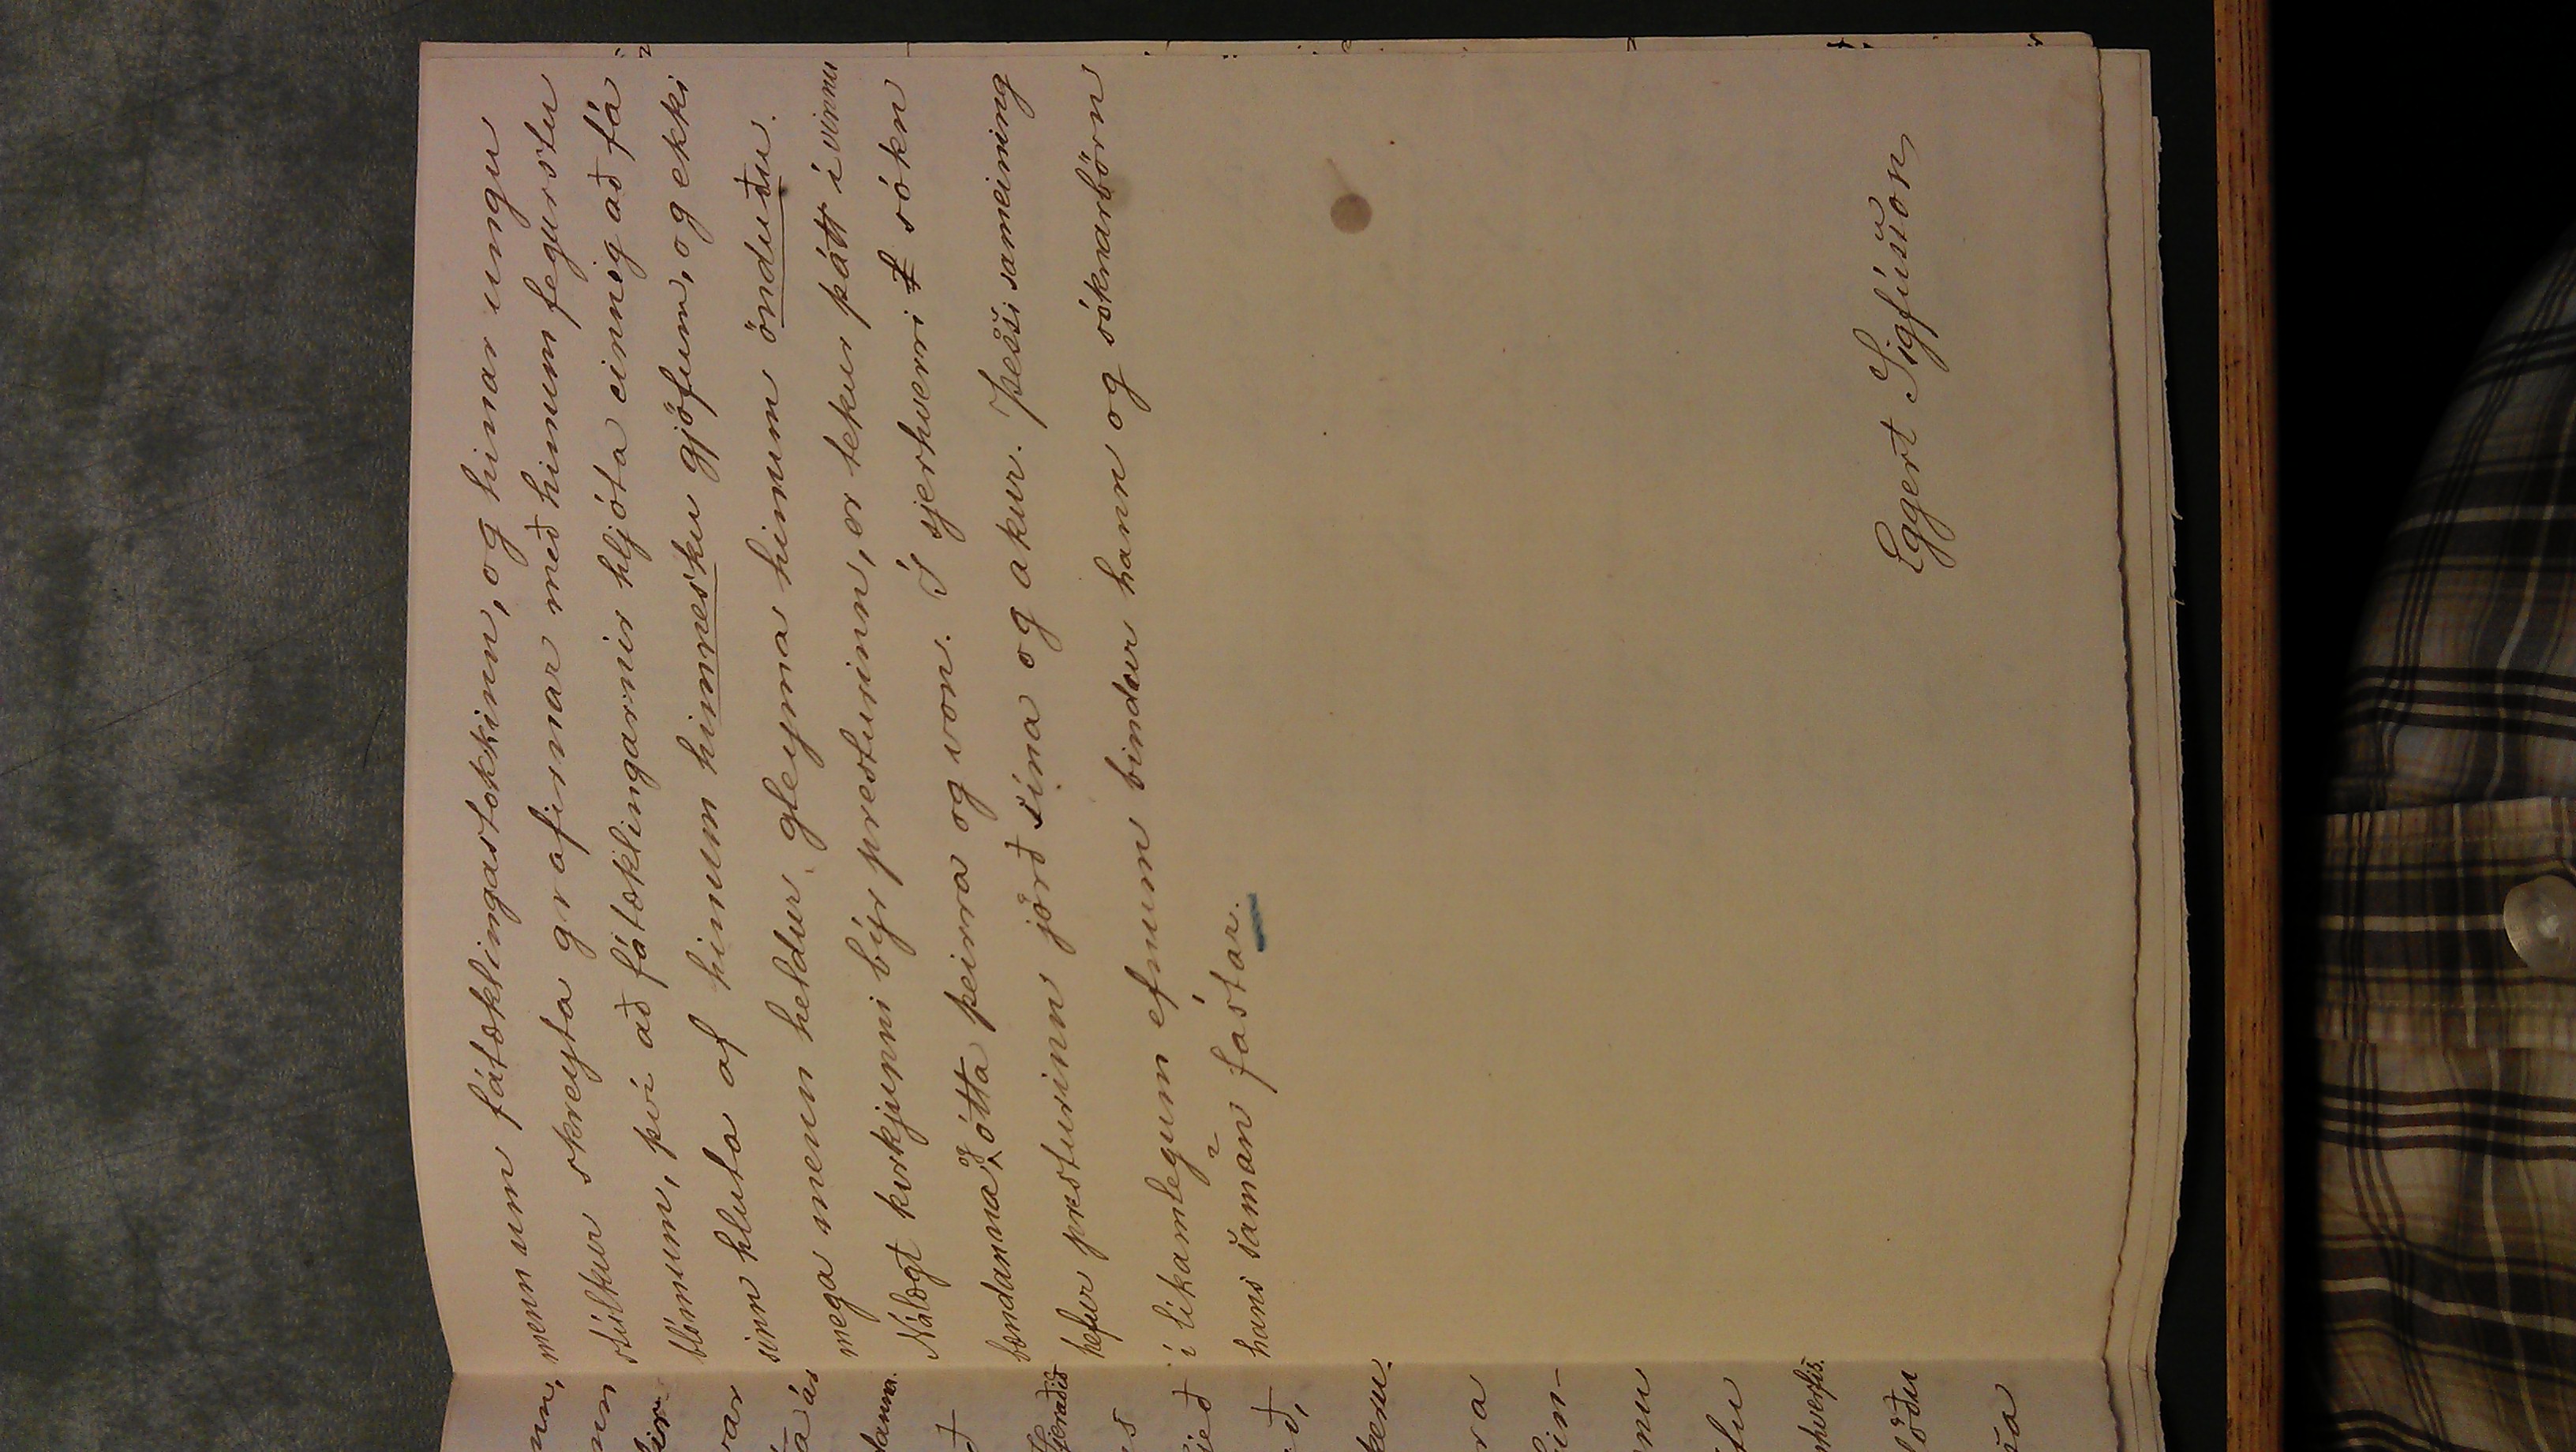 menn um fátæklingastokkinn, og hinar ungu
stúlkur skreyta grafirnar með himum fegurstu
blómum, því að fátæklingarnir hljóta einnig að fá
sinn hluta af hinum himnesku gjöfum, og ekki
mega menn heldur gleyma hinum önduðu.
Nálægt kirkjunni býr presturinn, er tekur þátt í vinnu
bændanna og ótta þeirra og von. Í sjerhverri sókn
hefur presturinn jörð sína og akur. Þessi sameining
í líkamlegum efnum bindur hann og sóknarbörn
hans saman fastar.
Eggert Sigfússon